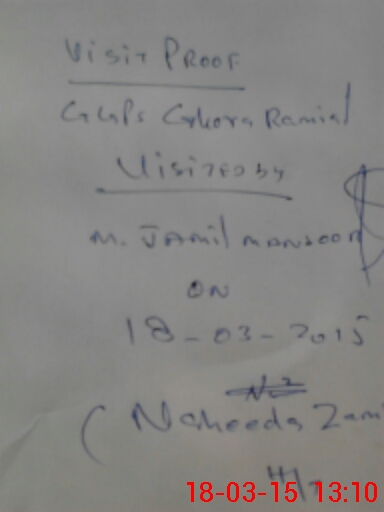 Visit Proof
GGPS Ghora Ramial
Visited by
M. Jamil Mansoor
ON
18-03-2015
(Naheeda Zami
H/T
18-03-15 13:10